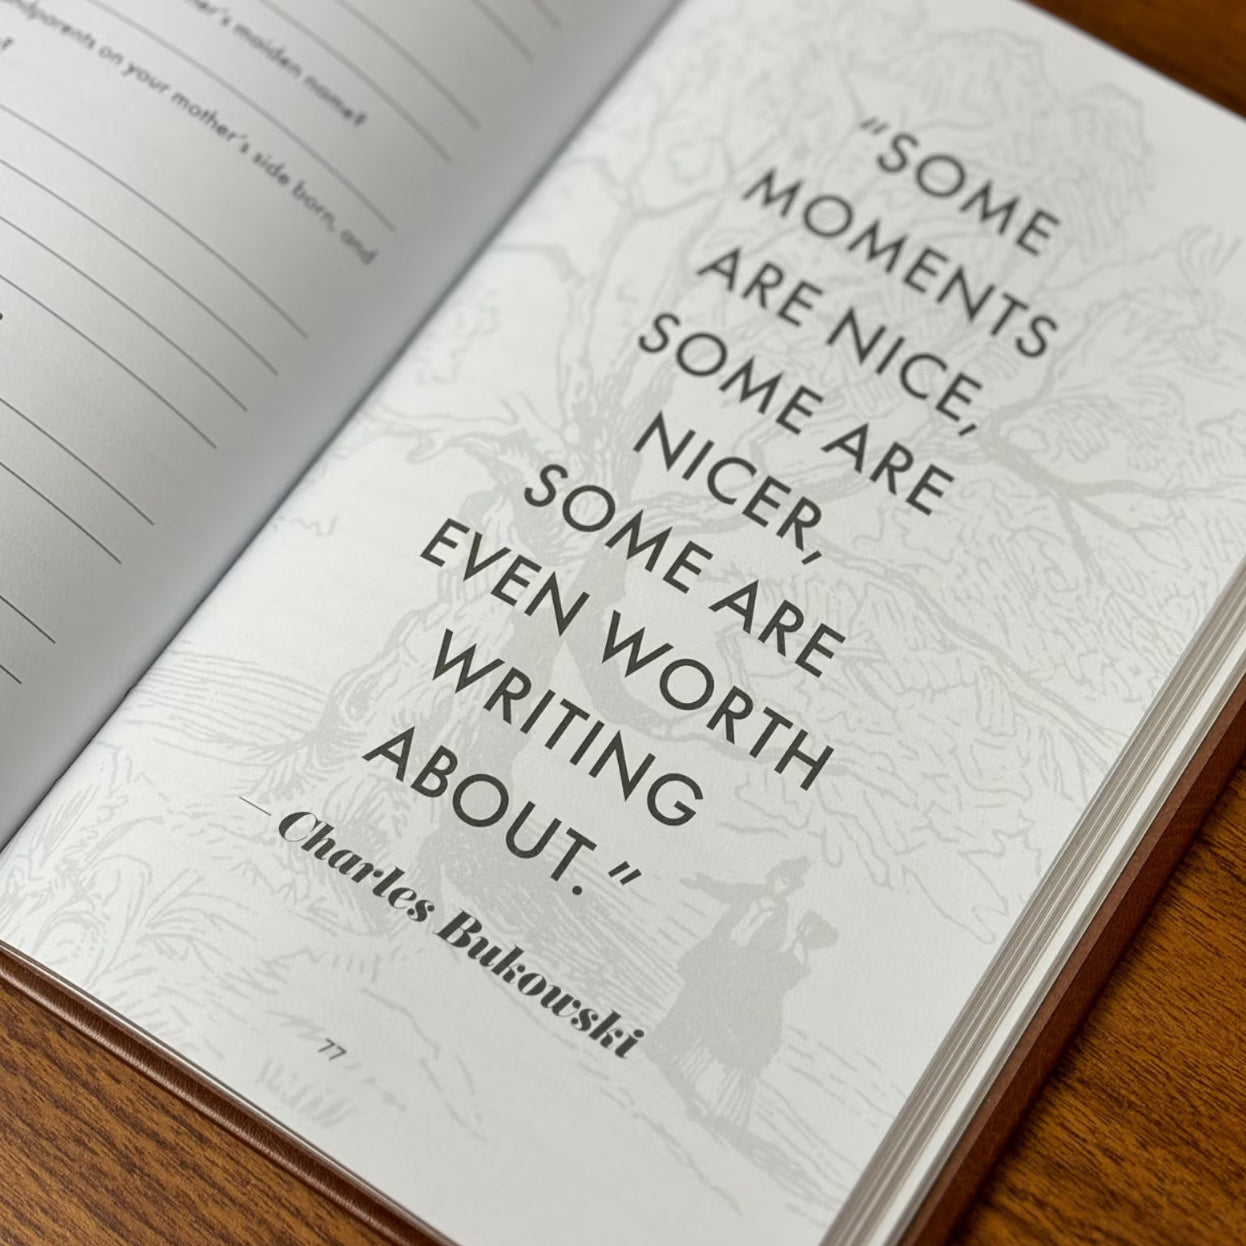 maiden name?
on your mother's side born, and
"SOME
MOMENTS
ARE NICE,
SOME ARE
NICER,
SOME ARE
EVEN WORTH
WRITING
ABOUT."
—Charles Bukowski
77